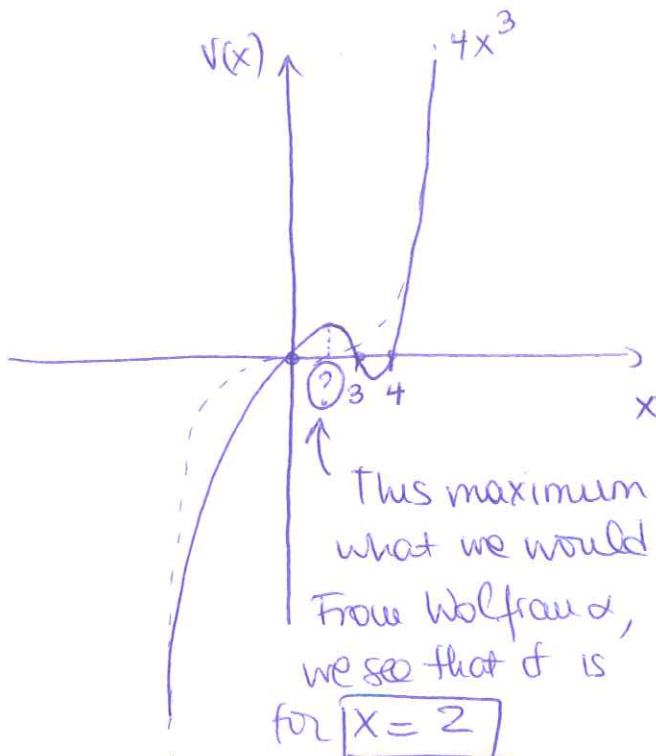 V(x)
4x³
? 3 4
x
This maximum
what we would
From Wolfram α,
we see that it is
for x = 2